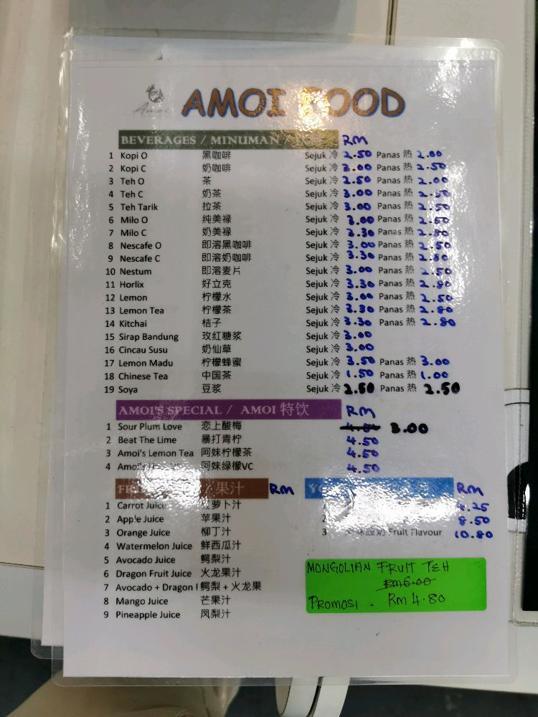 AMOI FOOD
BEVERAGES / MINUMAN / RM
1 Kopi O 黑咖啡 Sejuk 冷 2.50 Panas 热 2.00
2 Kopi C 奶咖啡 Sejuk 冷 3.00 Panas 热 2.50
3 Teh O 茶 Sejuk 冷 2.50 Panas 热 2.00
4 Teh C 奶茶 Sejuk 冷 3.00 Panas 热 2.50
5 Teh Tarik 拉茶 Sejuk 冷 3.00 Panas 热 2.50
6 Milo O 纯美禄 Sejuk 冷 3.00 Panas 热 2.50
7 Milo C 奶美禄 Sejuk 冷 3.30 Panas 热 2.80
8 Nescafe O 即溶黑咖啡 Sejuk 冷 3.00 Panas 热 2.50
9 Nescafe C 即溶奶咖啡 Sejuk 冷 3.30 Panas 热 2.80
10 Nestum 即溶麦片 Sejuk 冷 3.00 Panas 热 2.50
11 Horlix 好立克 Sejuk 冷 3.30 Panas 热 2.80
12 Lemon 柠檬水 Sejuk 冷 3.00 Panas 热 2.50
13 Lemon Tea 柠檬茶 Sejuk 冷 3.30 Panas 热 2.80
14 Kitchai 桔子 Sejuk 冷 3.30 Panas 热 2.80
15 Sirap Bandung 玫红糖浆 Sejuk 冷 3.00
16 Cincau Susu 奶仙草 Sejuk 冷 3.00
17 Lemon Madu 柠檬蜂蜜 Sejuk 冷 3.50 Panas 热 3.00
18 Chinese Tea 中国茶 Sejuk 冷 1.50 Panas 热 1.00
19 Soya 豆浆 Sejuk 冷 2.50 Panas 热 2.50
AMOI'S SPECIAL / AMOI 特饮 RM
1 Sour Plum Love 恋上酸梅 3.00
2 Beat The Lime 暴打青柠 4.50
3 Amoi's Lemon Tea 阿妹柠檬茶 4.50
4 阿妹绿檬VC 4.50
果汁 RM
RM
1 Carrot Juice 萝卜汁 .25
2 Apple Juice 苹果汁 2 8.50
3 Orange Juice 柳丁汁 3 Fruit Flavour 10.80
4 Watermelon Juice 鲜西瓜汁
5 Avocado Juice 鳄梨汁
6 Dragon Fruit Juice 火龙果汁
7 Avocado + Dragon 鳄梨 + 火龙果
8 Mango Juice 芒果汁
9 Pineapple Juice 凤梨汁
MONGOLIAN FRUIT TEH
RM6.00
PROMOSI - RM 4.80